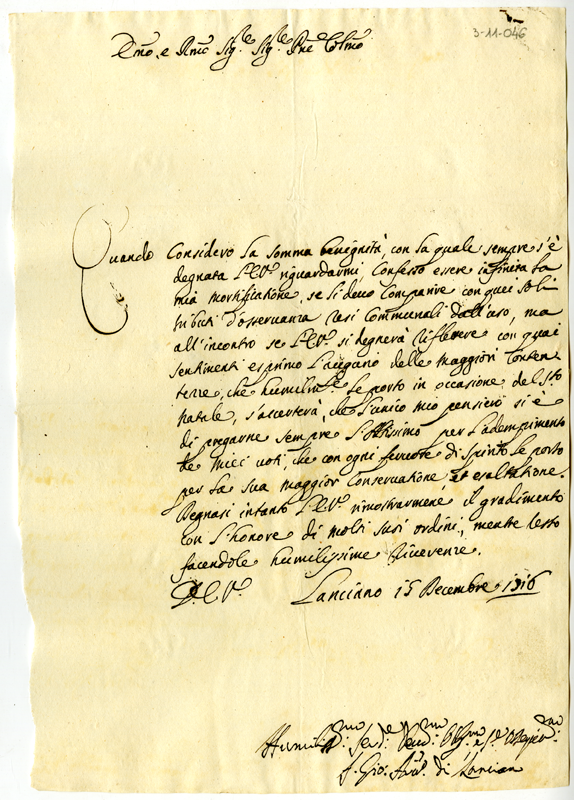 3-11-046
Emo, e Rmo Sigre Sigre Pne Colmo
Quando Considero la somma benignità, con la quale sempre s'è
degnata l'E.V. riguardarmi, Confesso essere infinita la
mia mortificatione, se li devo Comparire con quei soli
tributi d'osservanza resi Communali dall'uso, ma
all'incontro se l'E.V. si degnerà riflettere con quai
sentimenti esprimo l'augurio delle maggiori Conten-
tezze, che humilmte le porto in occasione del Sto
Natale, s'accerterà, che l'unico mio pensiero si è
di pregarne sempre l'Altissimo per l'adempimento
de miei voti, che con ogni fervore di spirito le porto
per la sua maggior Conservatione, et esaltatione.
Degnasi intanto l'E.V. rimostrarmene il gradimento
con l'honore di molti suoi ordini, mentre resto
facendole humilissime riverenze.
D.E.V. Lanciano 15 Decembre 1716
Humilismo Serre
F. Gio. di Lancian